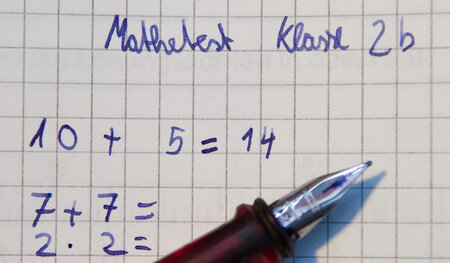 Mathetest Klasse 2b
10 + 5 = 14
7 + 7 =
2 · 2 =